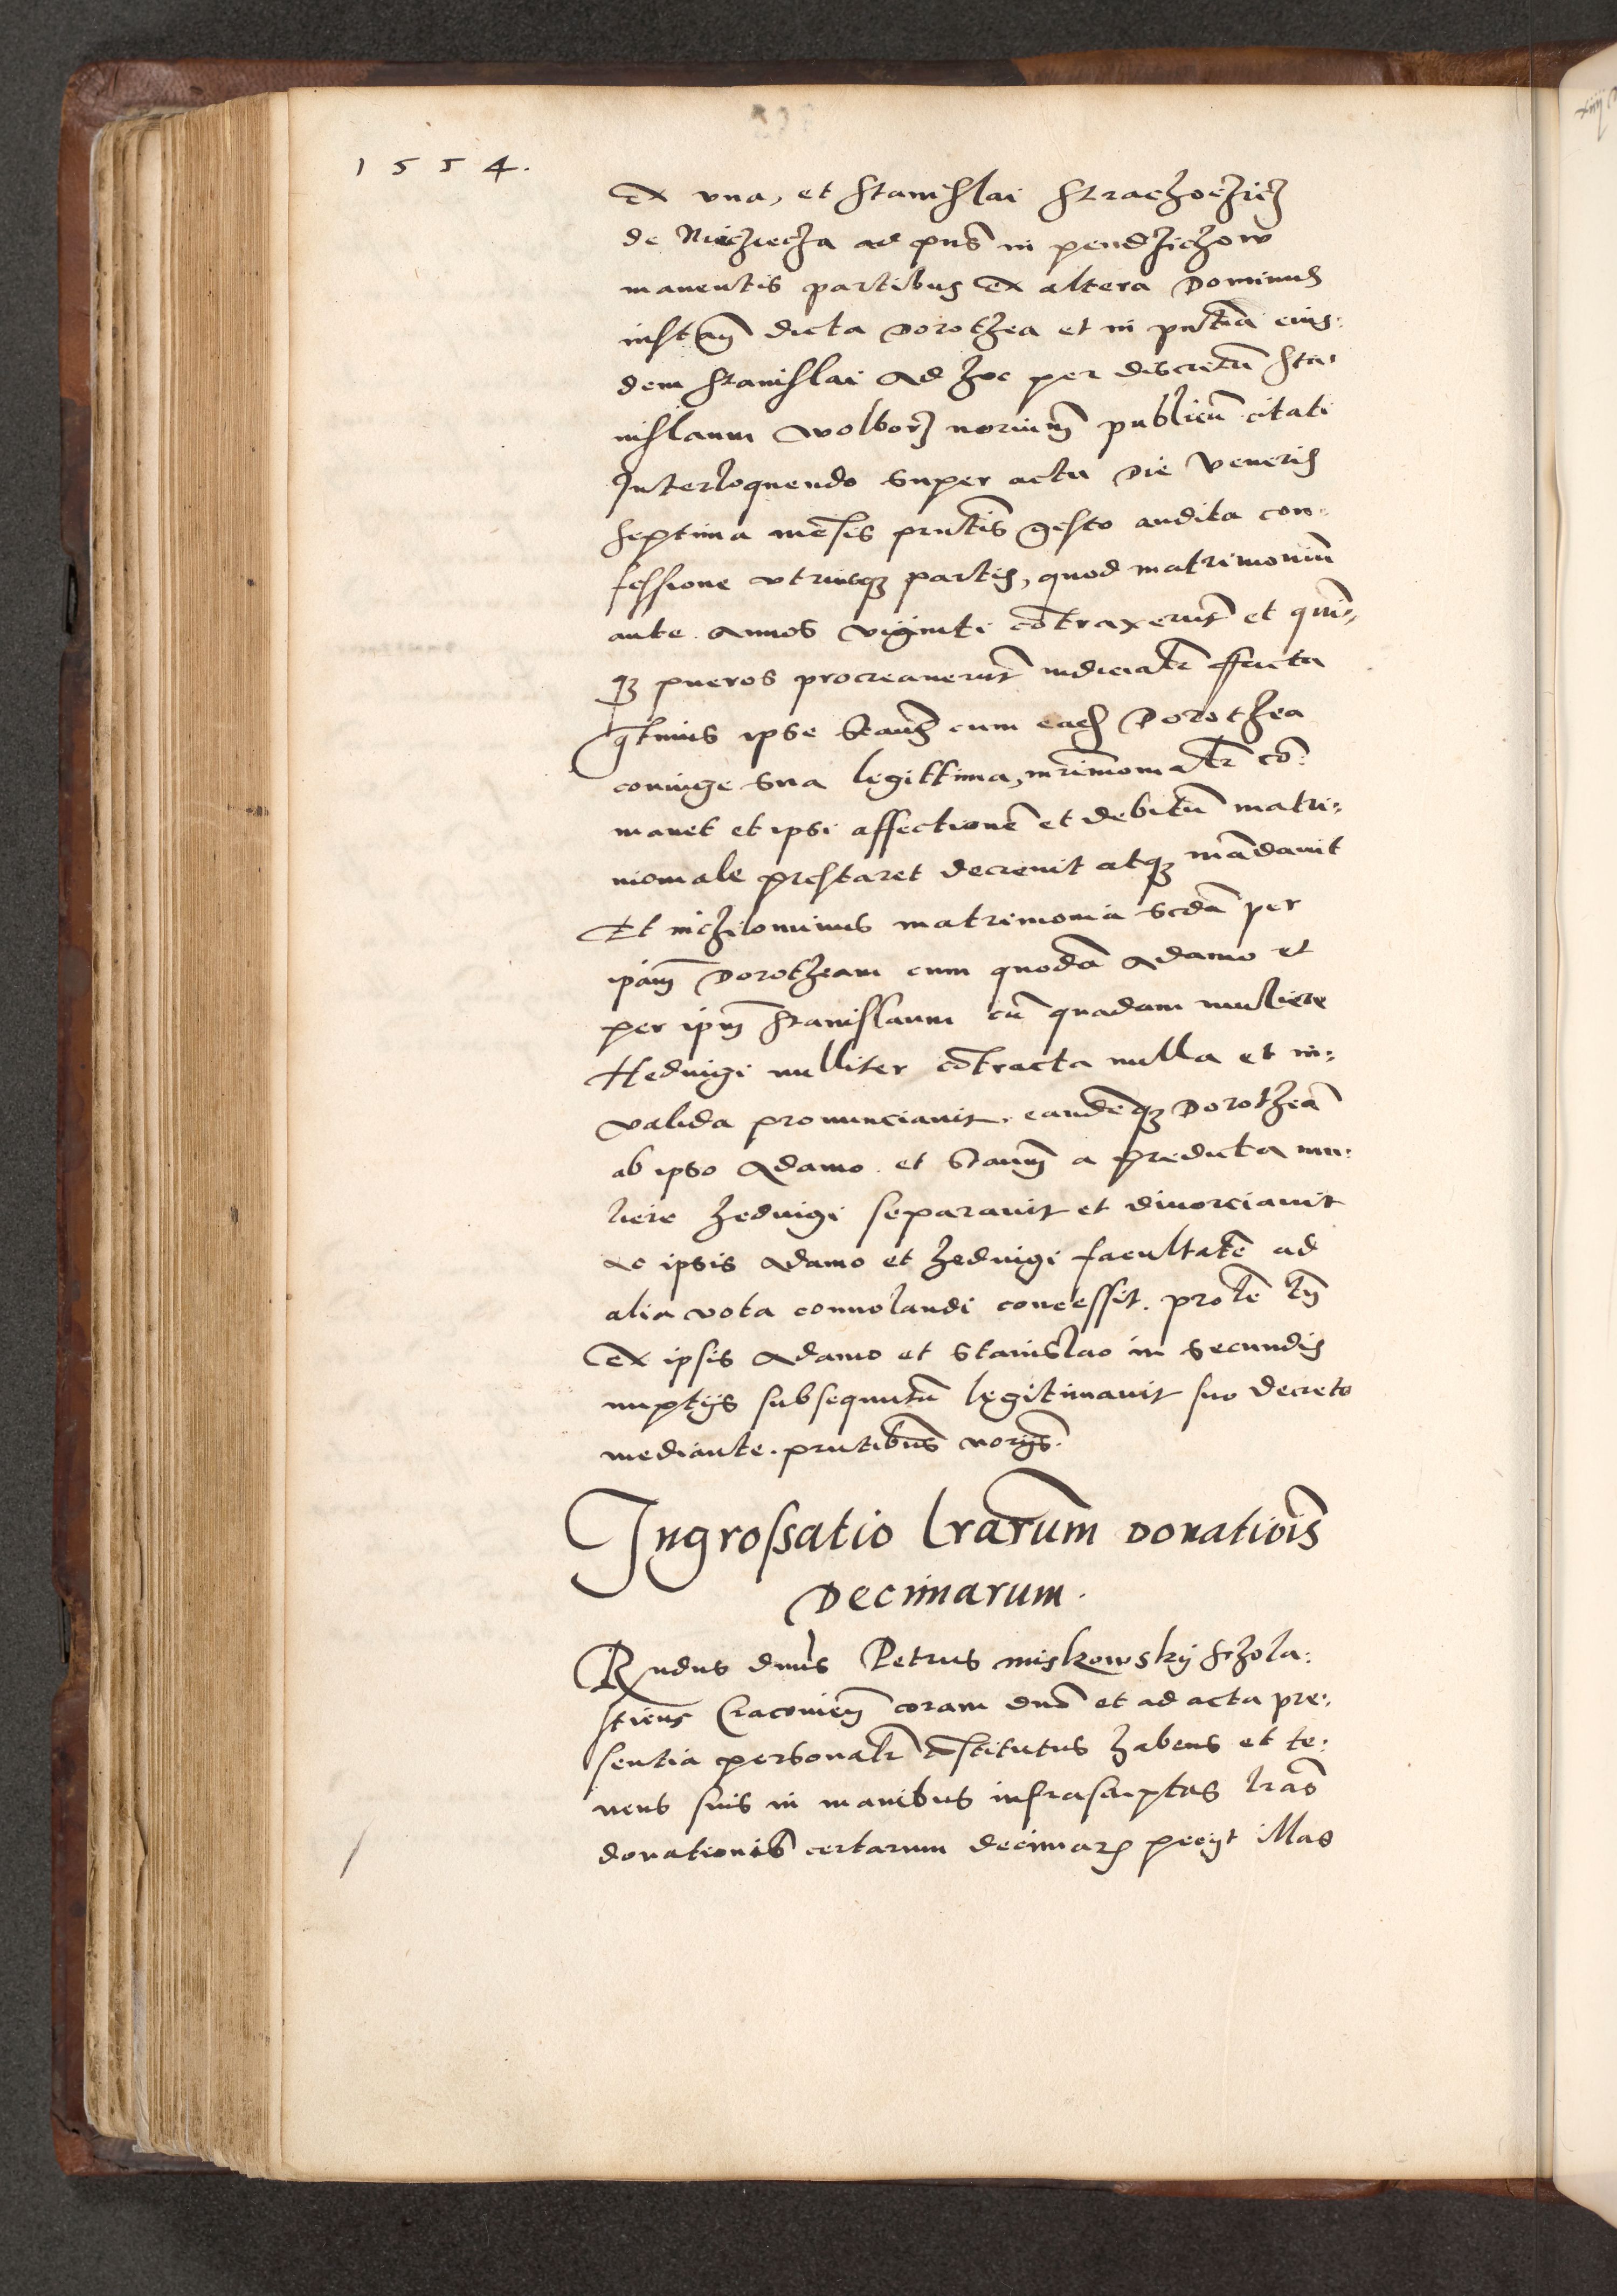 1554.
ex vna, et Stanislai Strachoczicz
de Niecziecza ad pns̃ in pendzichow
manentis partibus ex altera Dominus
instan̄ dicta Dorothea et in pn̄tiā eius=
dem Stanislai ad hoc per discretū Sta=
nislaum wolborz norium̄ publicū citati
Interloquendo super actu die Veneris
septima mēsis pn̄tis gesto audita con=
fessione vtriusqȝ partis, quod matrimoniū
ante annos viginti cōtraxerūt et quī=
qȝ pueros procreauerūt iudicialr̄ facta
q̄tenus ipse Stan̄s cum eadē Dorothea
coniuge sua legittima, mr̄imonialr̄ cō=
manet et ipsi affectionē et debitū matri=
moniale prestaret decreuit atqȝ mādauit
Et nichilominus matrimonia scdā per
ipam̄ Dorotheam cum quodā Adamo et
per ipm̄ Stanislaum cū quadam muliere
Heduigi nulliter cōtracta nulla et in=
valida pronunciauit, eandēqȝ Dorotheā
ab ipso Adamo et Stan̄m a predicta mu=
liere heduigi separauit et diuorciauit
ac ipsis Adamo et heduigi facultatē ad
alia vota conuolandi concessit. prolē tn̄
ex ipsis Adamo et Stanislao in secundis
nuptijs subsequutā legitimauit suo decreto
mediante. pn̄tibus norijs.
Ingrossatio lr̄arum donatiōis
Decimarum.
Rn̄dus dnūs Petrus miskowskij schola=
sticus Cracovien̄ coram dnō et ad acta pre=
sentia personalr̄ cōstitutus habens et te=
nens suis in manibus infrascriptas lrās
donationis certarum decimarꝝ pecijt illas